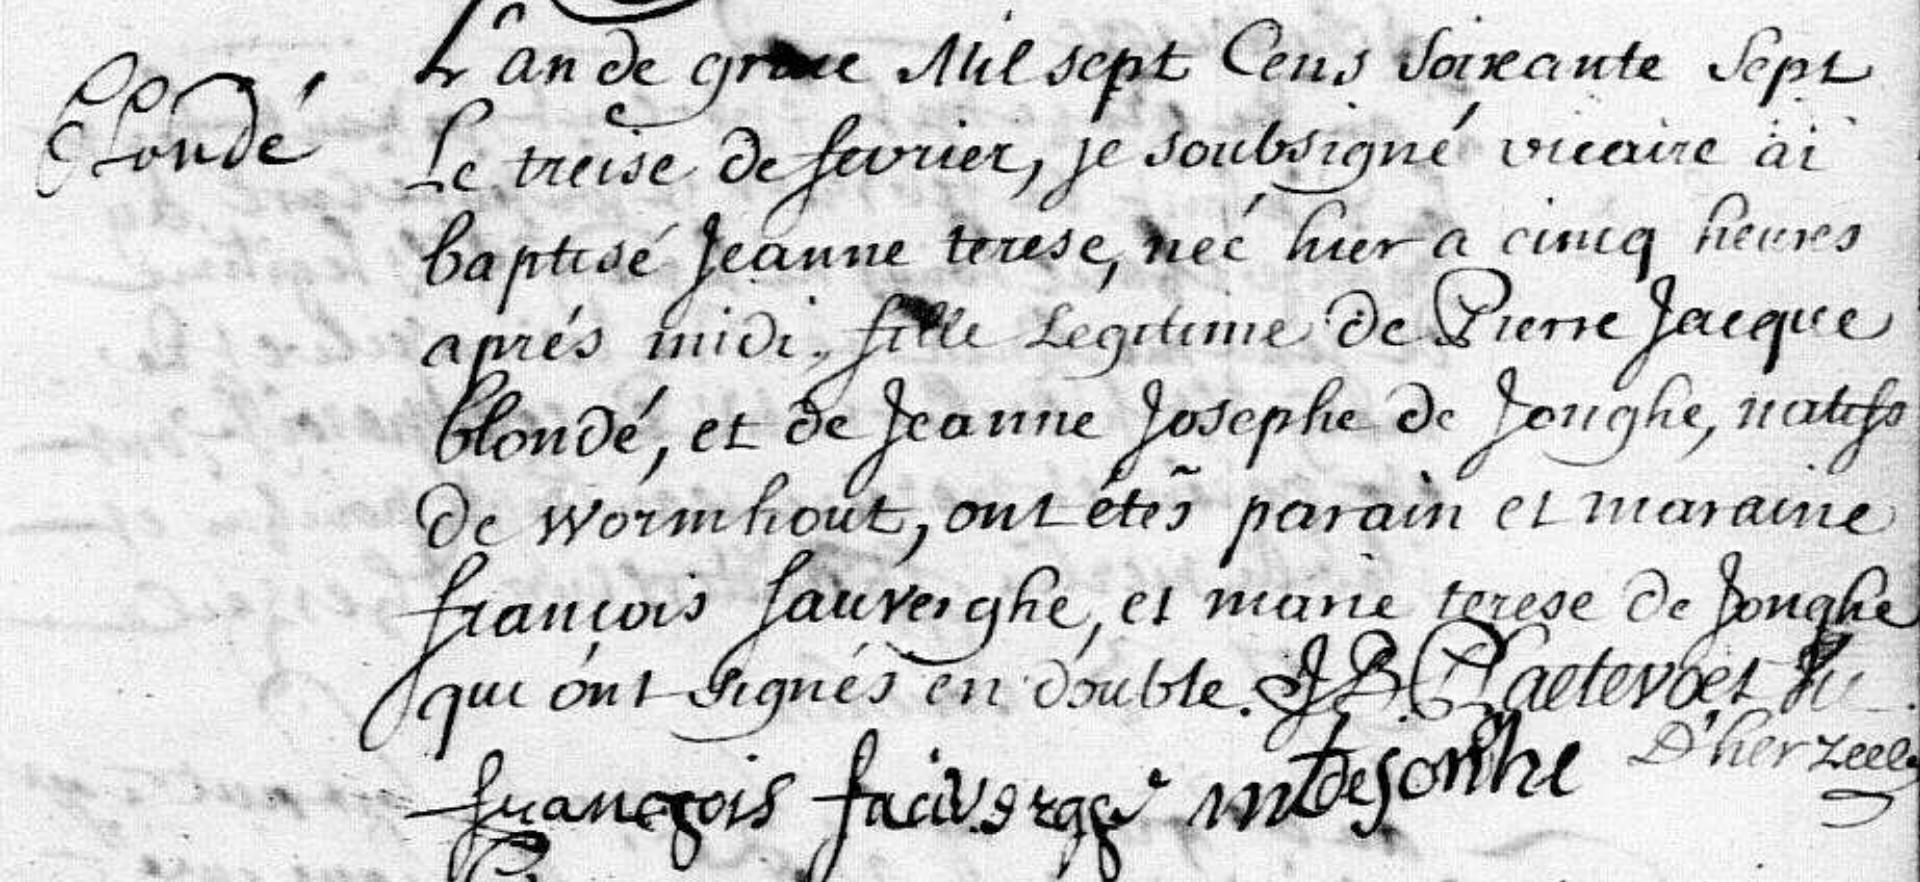 Blondé
L'an de grace Mil sept Cens soixante sept
Le treise de fevrier, je soubsigné vicaire ai
baptisé Jeanne terese, neé hier a cincq heures
aprés midi, fille Legitime de Pierre Jacque
blondé, et de Jeanne Josephe de Jonghe, natifs
de wormhout, ont étés parain et maraine
françois fauverghe, et marie terese de Jonghe
qui ont signés en double. J B Plaetevoet
D'herzeele
françois fauvergge mt de Jonhe